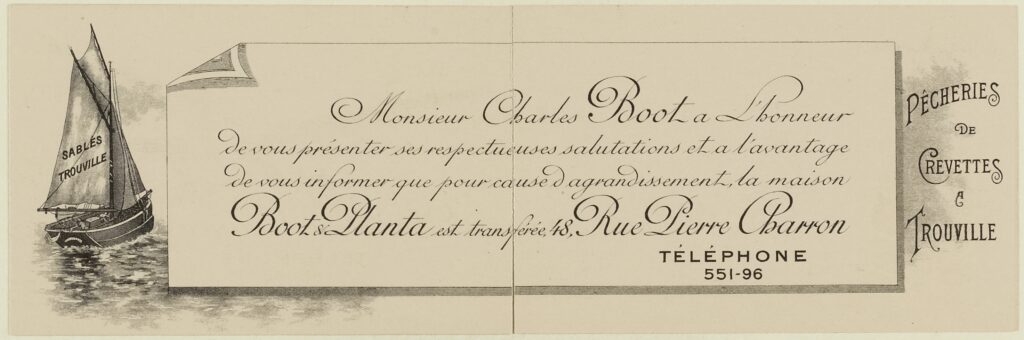 SABLÉS
TROUVILLE
Monsieur Charles Boot a L'honneur
de vous présenter ses respectueuses salutations et a l'avantage
de vous informer que pour cause d'agrandissement, la maison
Boot & Planta est transférée, 48, Rue Pierre Charron
TÉLÉPHONE
551-96
PÊCHERIES
DE
CREVETTES
A
TROUVILLE